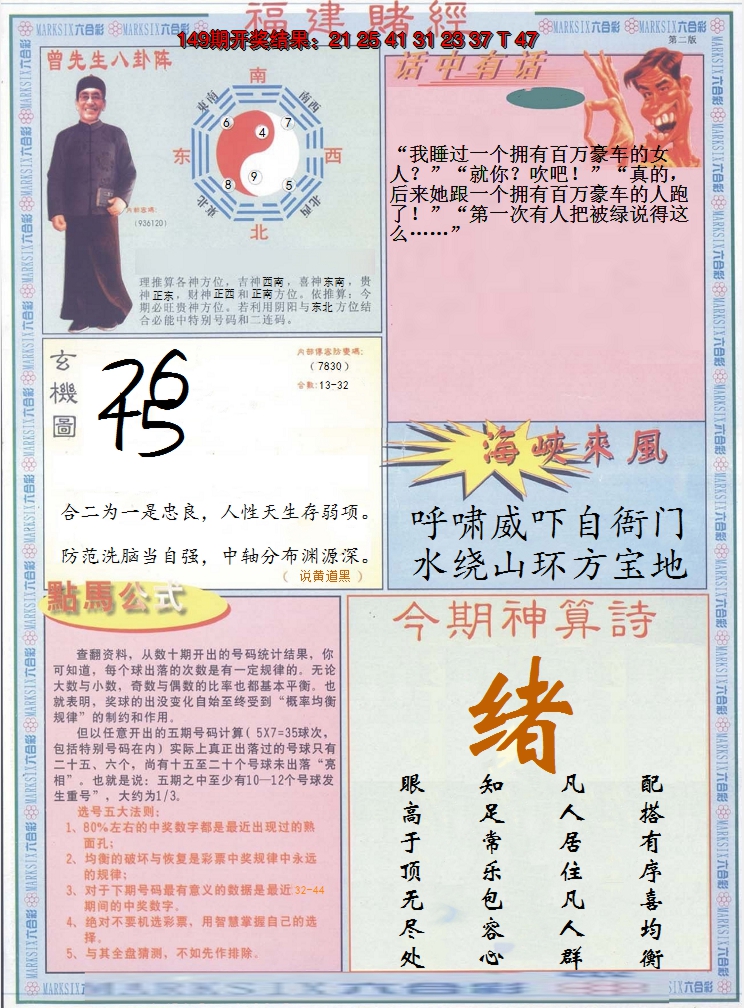 福建賭經
149期开奖结果：21 25 41 31 23 37 T 47
MARKSIX六合彩
第二版
曾先生八卦阵
南
东南
南西
6
7
4
东
西
9
8
5
東北
北西
北
內部密碼:
（936120）
理推算各神方位，吉神西南，喜神东南，贵
神正东，财神正西和正南方位。依推算：今
期必旺贵神方位。若利用阴阳与东北方位结
合必能中特别号码和二连码。
话中有话
“我睡过一个拥有百万豪车的女
人？”“就你？吹吧！”“真的，
后来她跟一个拥有百万豪车的人跑
了！”“第一次有人把被绿说得这
么……”
玄機圖
26
45
（7830）
合数:13-32
合二为一是忠良，人性天生存弱项。
防范洗脑当自强，中轴分布渊源深。
（ 说黄道黑 ）
海峽來風
呼啸威吓自衙门
水绕山环方宝地
點馬公式
查翻资料，从数十期开出的号码统计结果，你
可知道，每个球出落的次数是有一定规律的。无论
大数与小数，奇数与偶数的比率也都基本平衡。也
就表明，奖球的出没变化自始至终受到“概率均衡
规律”的制约和作用。
但以任意开出的五期号码计算( 5X7=35球次，
包括特别号码在内）实际上真正出落过的号球只有
二十五、六个，尚有十五至二十个号球未出落“亮
相”。也就是说：五期之中至少有10—12个号球发
生重号”，大约为1/3。
选号五大法则：
1、80%左右的中奖数字都是最近出现过的熟
面孔；
2、均衡的破坏与恢复是彩票中奖规律中永远
的规律；
3、对于下期号码最有意义的数据是最近32-44
期间的中奖数字。
4、绝对不要机选彩票，用智慧掌握自己的选
择。
5、与其全盘猜测，不如先作排除。
今期神算詩
绪
眼高于顶无尽处
知足常乐包容心
凡人居住凡人群
配搭有序喜均衡